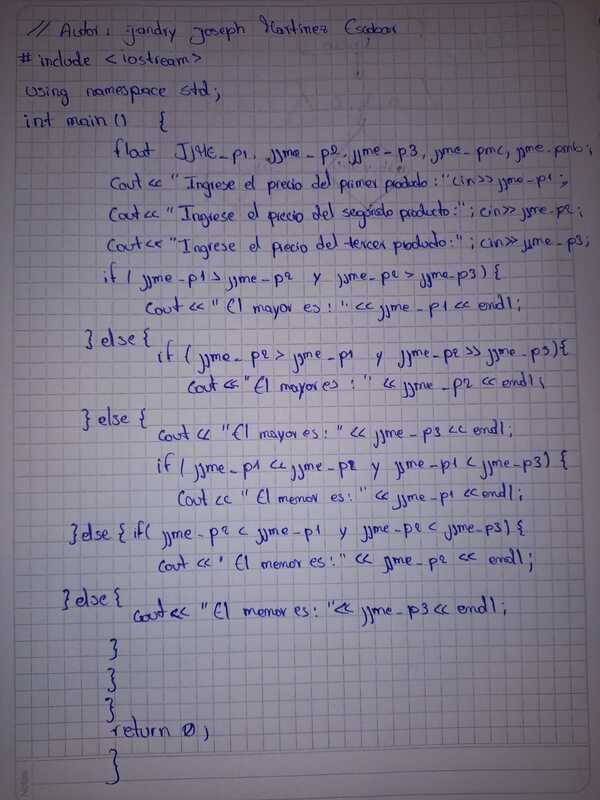 // Autor: jandry Joseph Martinez Escobar
# include <iostream>
using namespace std;
int main() {
float JJME_p1, jjme_p2, jjme_p3, jjme_pmc, jjme_pmb;
Cout << "Ingrese el precio del primer producto:" cin >> jjme_p1;
Cout << "Ingrese el precio del segundo producto:"; cin >> jjme_p2;
Cout << "Ingrese el precio del tercer producto:"; cin >> jjme_p3;
if ( jjme_p1 > jjme_p2 y jjme_p2 > jjme_p3) {
Cout << "El mayor es: " << jjme_p1 << endl;
} else {
if ( jjme_p2 > jjme_p1 y jjme_p2 >> jjme_p3) {
Cout << "El mayor es: " << jjme_p2 << endl;
} else {
cout << "El mayor es: " << jjme_p3 << endl;
if ( jjme_p1 << jjme_p2 y jjme_p1 < jjme_p3) {
Cout << "El menor es: " << jjme_p1 << endl;
} else { if ( jjme_p2 < jjme_p1 y jjme_p2 < jjme_p3) {
cout << "El menor es:" << jjme_p2 << endl;
} else {
cout << "El menor es: " << jjme_p3 << endl;
}
}
}
return 0;
}